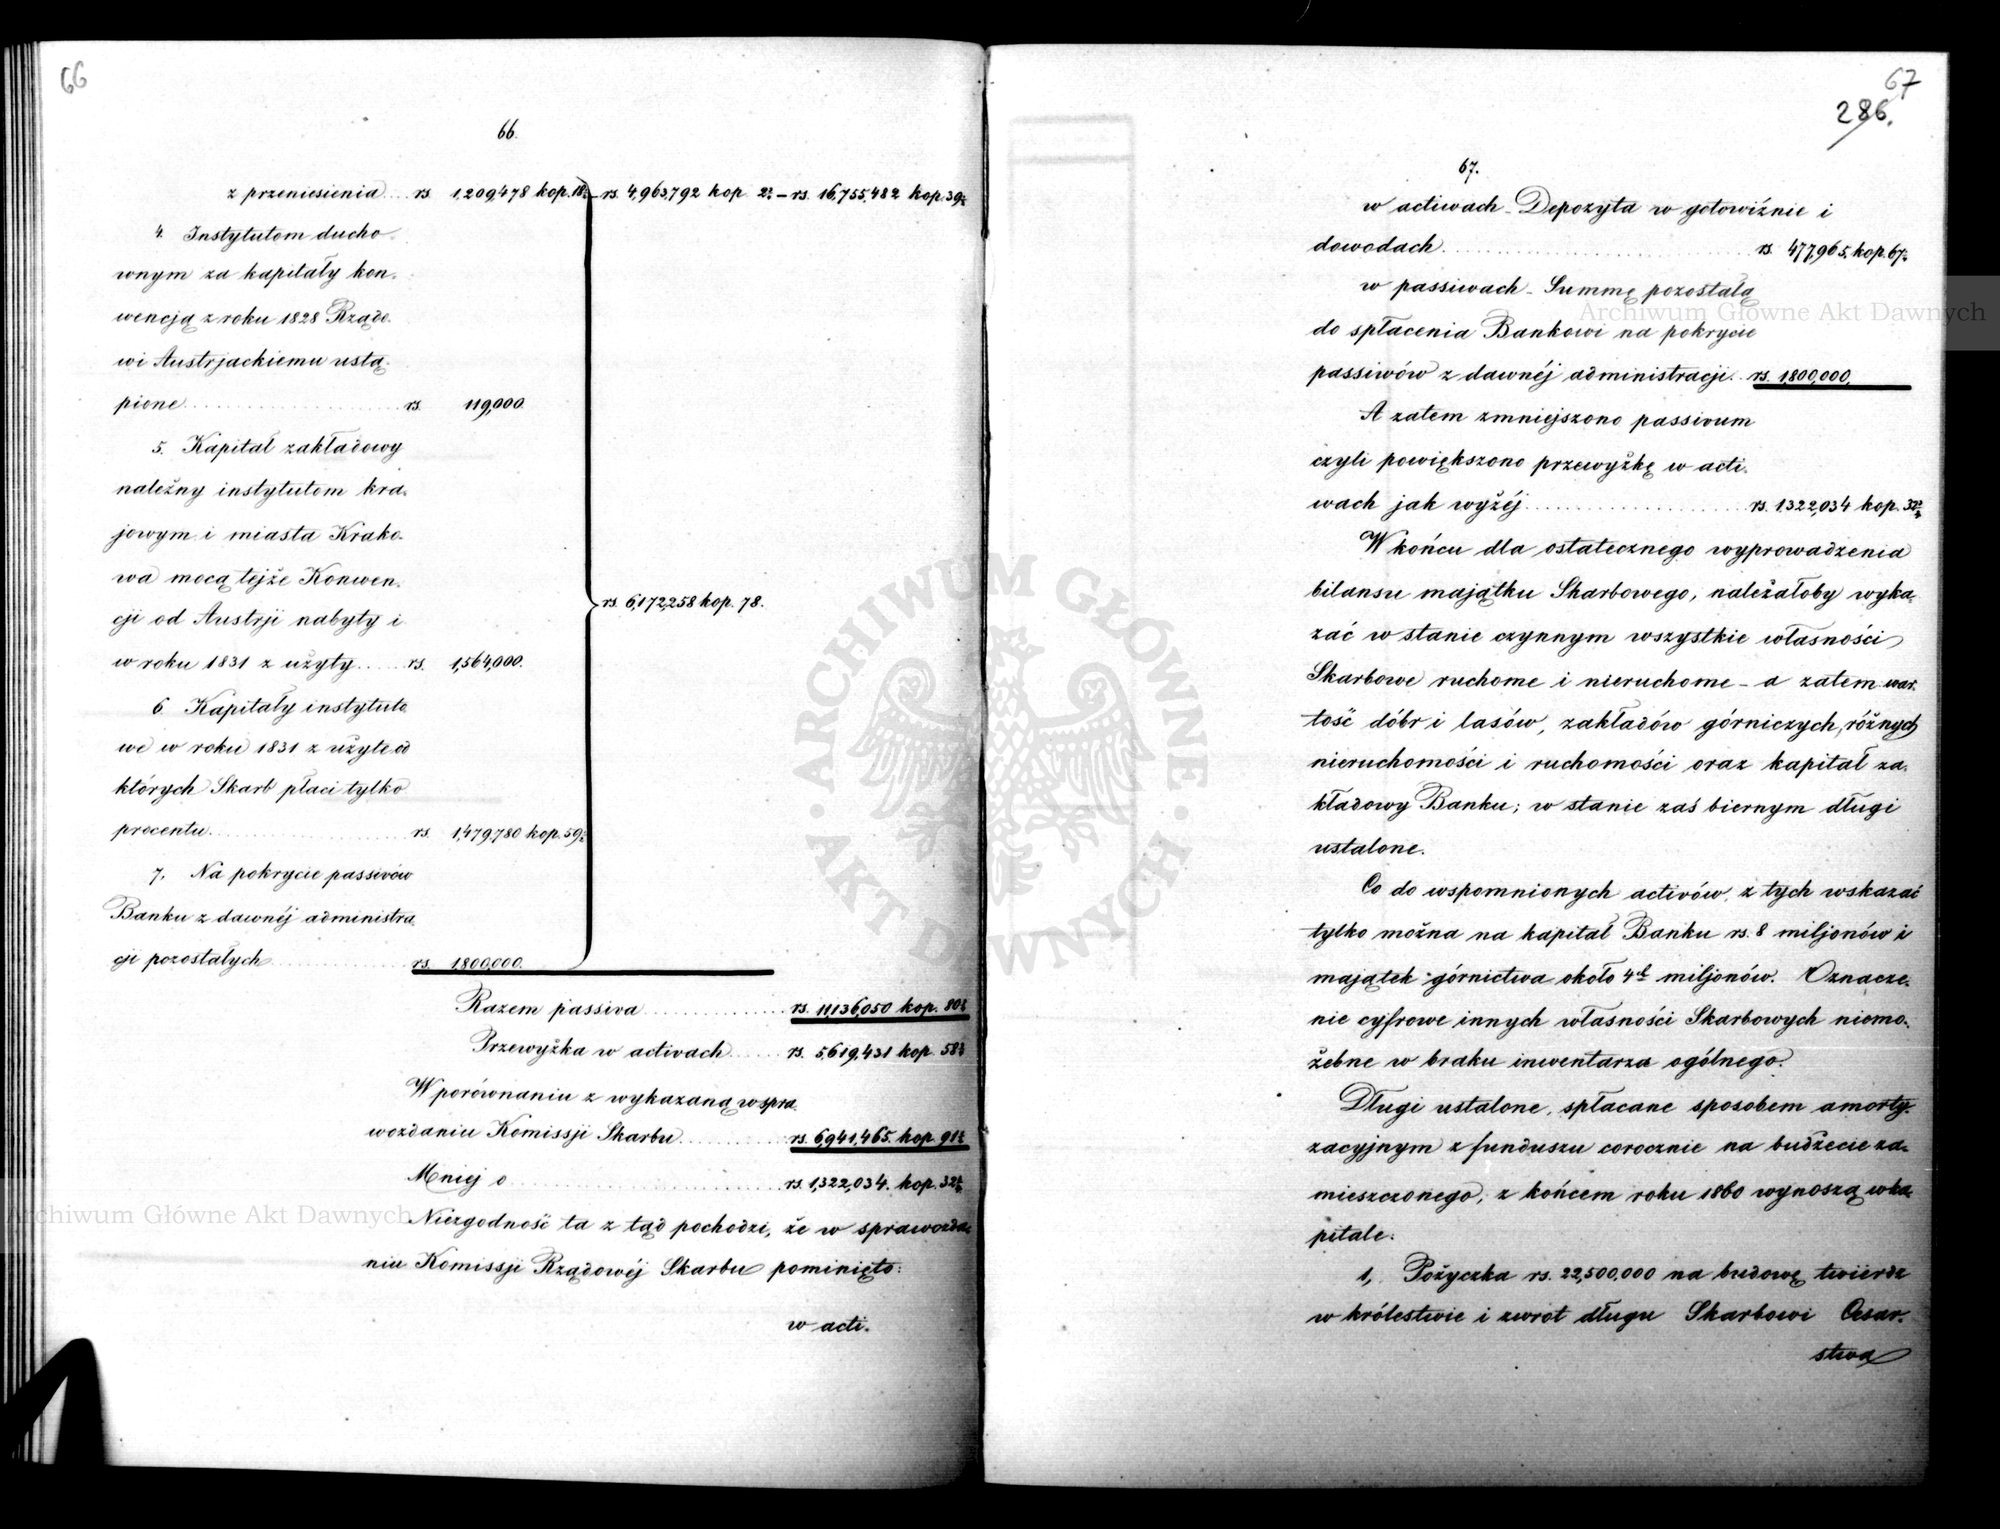 66
66.
z przeniesienia .... rs. 1,209,478 kop. 18 – rs. 4,963,792 kop. 2½ – rs. 16,755,482 kop. 39½
4. Instytutom ducho-
wnym za kapitały kon-
wencją z roku 1828 Rządo-
wi Austrjackiemu ustą-
pione .......... rs. 119,000.
5. Kapitał zakładowy
należny instytutom kra-
jowym i miasta Krako-
wa mocą tejże Konwen-
rs. 6,172,258 kop. 78.
cji od Austrji nabyty i
w roku 1831 zużyty .... rs. 1,564,000.
6. Kapitały instytuto-
we w roku 1831 zużyte od
których Skarb płaci tylko
procenta .......... rs. 1,479,780 kop. 59½
7. Na pokrycie passivów
Banku z dawnéj administra-
cji pozostałych .......... rs. 1,800,000.
Razem passiva .......... rs. 11,136,050 kop. 80½
Przewyżka w activach ..... rs. 5,619,431 kop. 58½
W porównaniu z wykazaną w spra-
wozdaniu Komissji Skarbu .......... rs. 6,941,465. kop. 91½
Mniej o .......... rs. 1,322,034. kop. 32½
Niezgodność ta z tąd pochodzi, że w sprawozda-
niu Komissji Rządowéj Skarbu pominięto:
w acti-
67
286.
67.
w activach – Depozyta w gotowiźnie i
dowodach .......... rs. 477,965, kop. 67½
w passivach – Summę pozostałą
do spłacenia Bankowi na pokrycie
passivów z dawnéj administracji .. rs. 1,800,000.
A zatem zmniejszono passivum
czyli powiększono przewyżkę w acti-
wach jak wyżéj .......... rs. 1,322,034 kop. 32½
W końcu dla ostatecznego wyprowadzenia
bilansu majątku Skarbowego, należałoby wyka-
zać w stanie czynnym wszystkie własności
Skarbowe ruchome i nieruchome – a zatem war-
tość dóbr i lasów, zakładów górniczych, różnych
nieruchomości i ruchomości oraz kapitał za-
kładowy Banku; w stanie zaś biernym długi
ustalone.
Co do wspomnionych activów, z tych wskazać
tylko można na kapitał Banku rs. 8 miljonów i
majątek górnictwa około 4ch miljonów. Oznacze-
nie cyfrowe innych własności Skarbowych niemo-
żebne w braku inwentarza ogólnego.
Długi ustalone, spłacane sposobem amorty-
zacyjnym z funduszu corocznie na budżecie za-
mieszczonego, z końcem roku 1860 wynoszą w ka-
pitale:
1, Pożyczka rs. 22,500,000 na budowę twierdz
w królestwie i zwrot długu Skarbowi Cesar-
stwa
Archiwum Główne Akt Dawnych
Archiwum Główne Akt Dawnych
· ARCHIWUM GŁÓWNE · AKT DAWNYCH